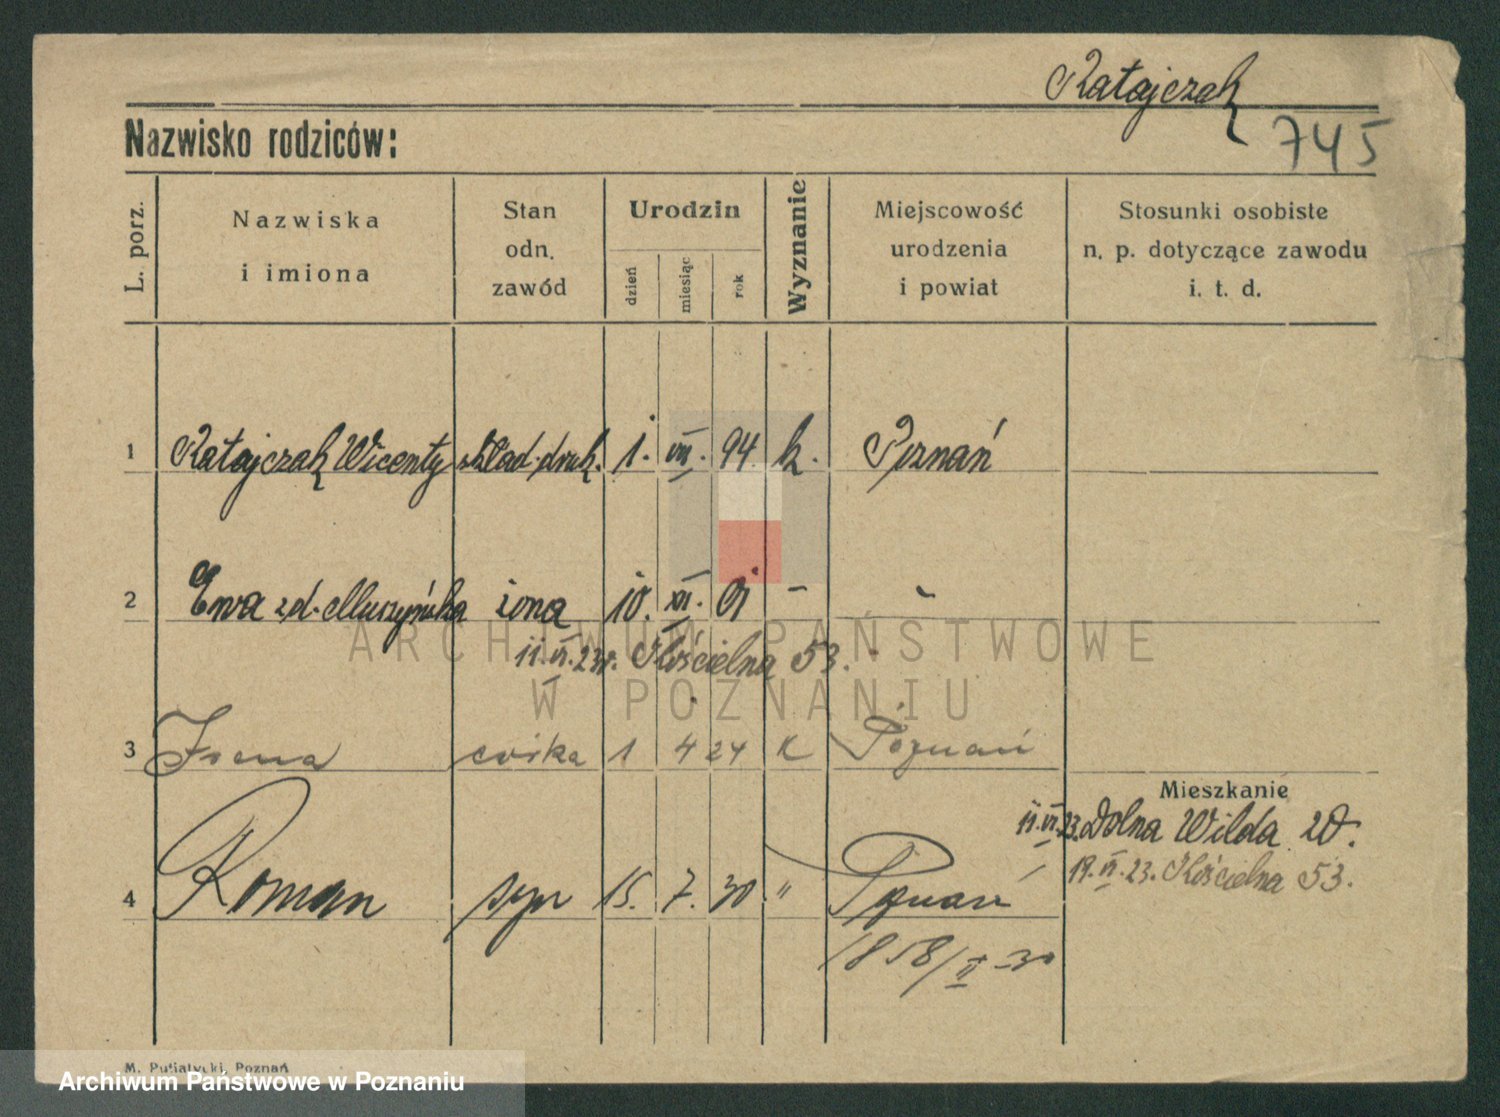 Ratajczak
745
Nazwisko rodziców:
L. porz.
Nazwiska i imiona
Stan odn. zawód
Urodzin
dzień
miesiąc
rok
Wyznanie
Miejscowość urodzenia i powiat
Stosunki osobiste n. p. dotyczące zawodu i. t. d.
1 Ratajczak Wicenty skład. druk. 1. VII. 94 k. Poznań
2 Ewa zd. Muszyńska żona 10. XII. 01 – –
11. VI. 23r. Kościelna 53.
3 Irena córka 1 4 24 K Poznań
Mieszkanie
11. VI. 23. Dolna Wilda 20.
19. VI. 23. Kościelna 53.
4 Roman syn 15. 7. 30 " Poznań
1858/II-30
M. Putiatycki, Poznań
ARCHIWUM PAŃSTWOWE
W POZNANIU
Archiwum Państwowe w Poznaniu